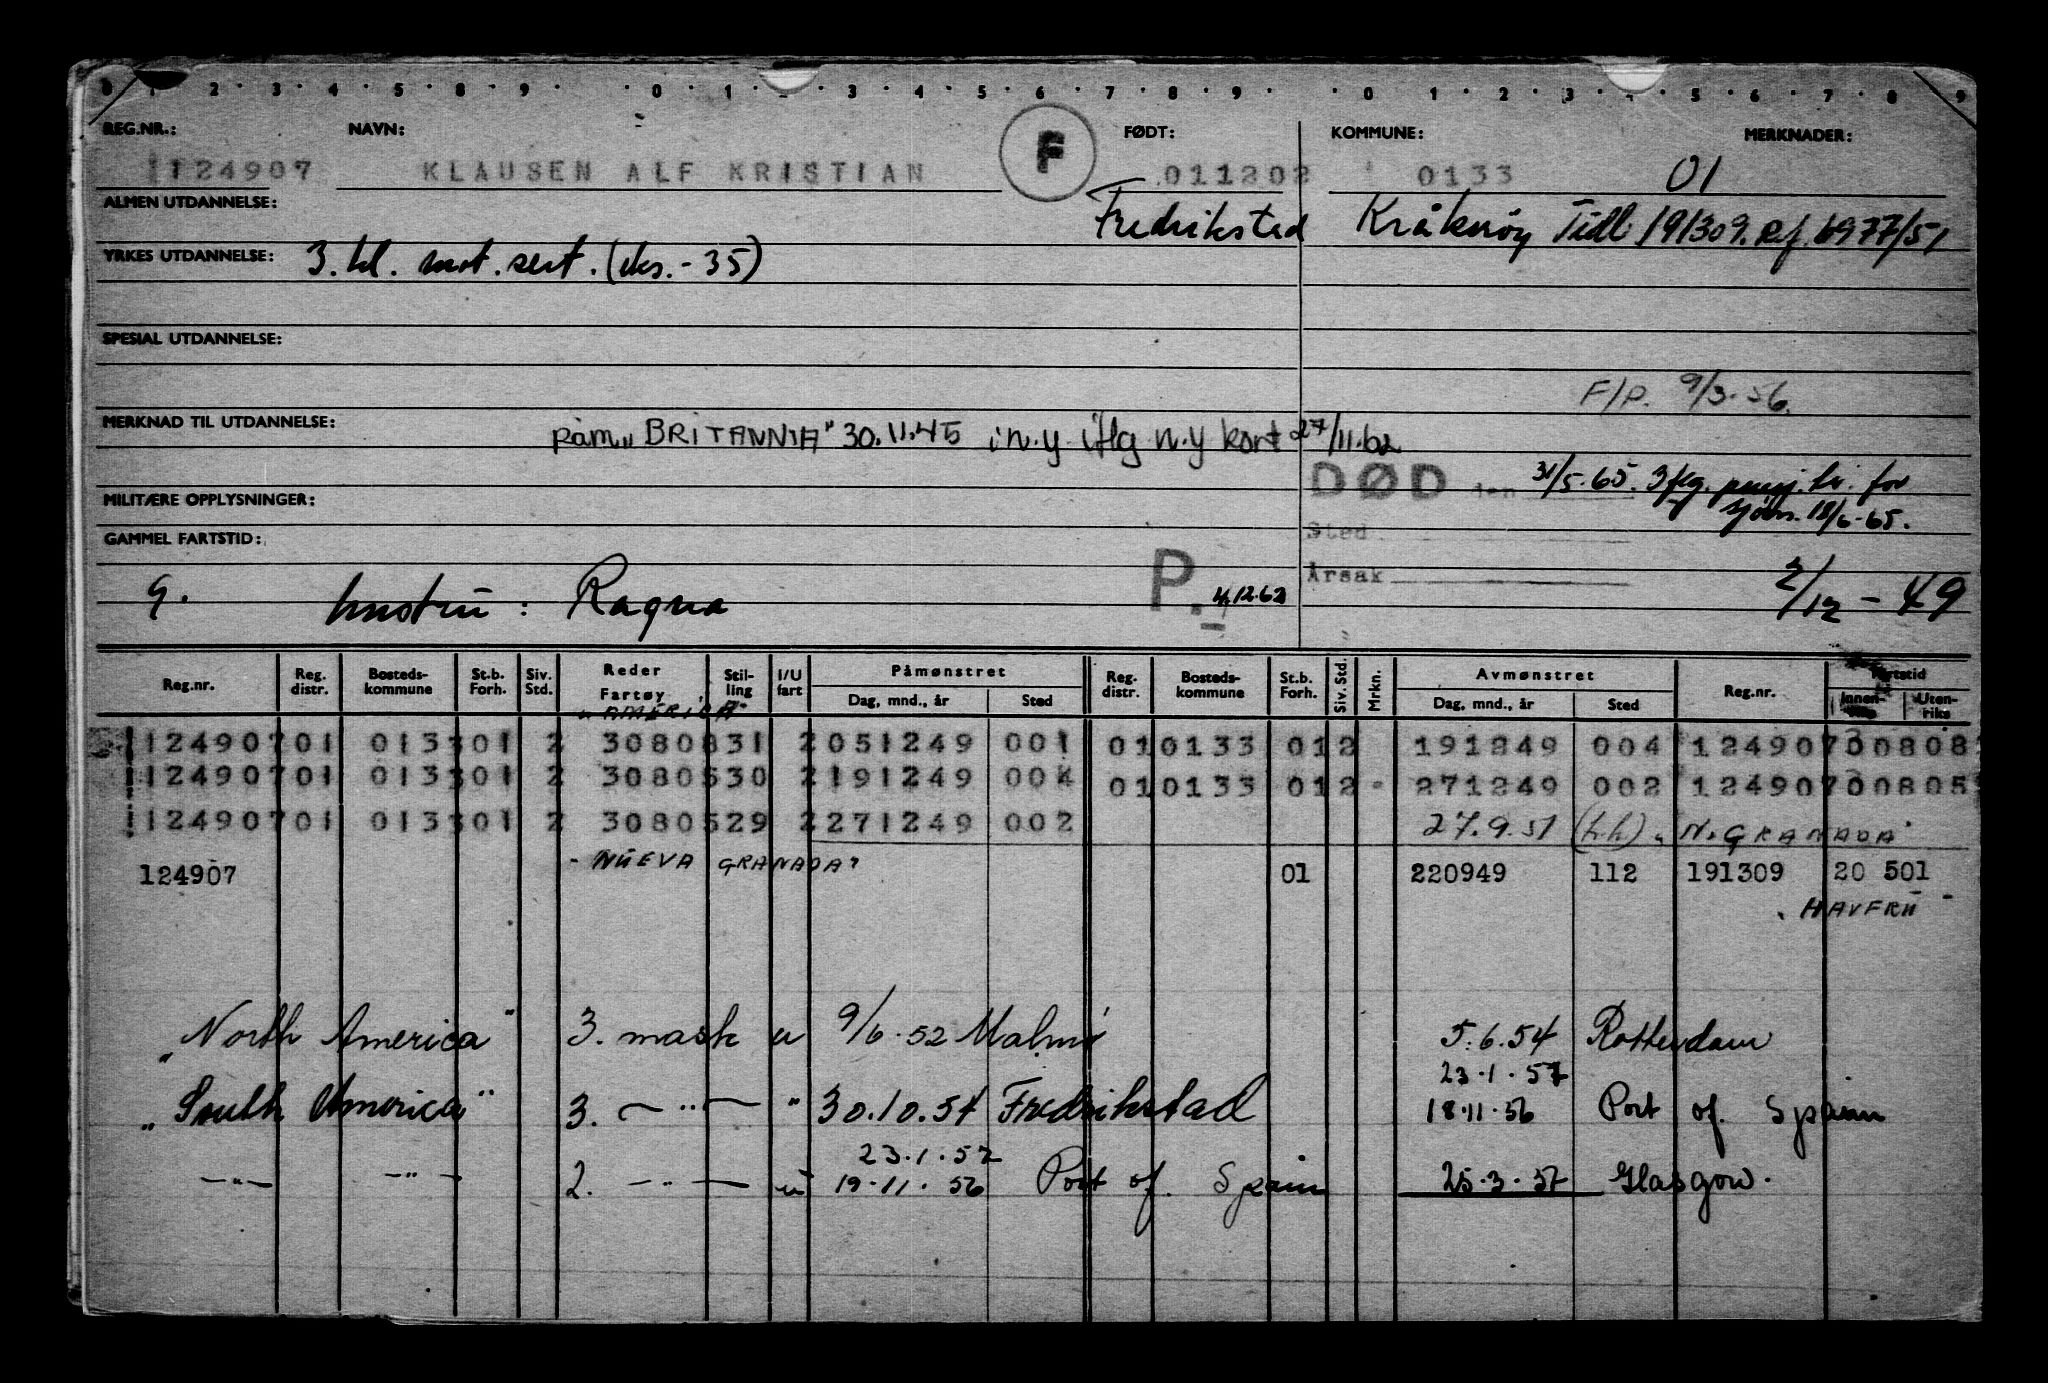 0 1 2 3 4 5 8 9 0 1 3 4 5 6 7 8 9 0 1 2 3 4 5 6 7 8 9
REG.NR.: NAVN: F FØDT: KOMMUNE: MERKNADER:
124907 KLAUSEN ALF KRISTIAN 011202 0133 01
ALMEN UTDANNELSE: Fredriksted Kråkerøy Tidl. 191309. Ref. 6977/51
YRKES UTDANNELSE: 3. kl. mot. sert. (eks. - 35)
SPESIAL UTDANNELSE:
F/P. 9/3-56.
MERKNAD TIL UTDANNELSE: påm „BRITANNIA" 30.11.45 i n.y iflg n.y kort 27/11.62
DØD den 31/5-65. 3 flg. pensj. tr. for
MILITÆRE OPPLYSNINGER: sjøm. 18/6-65.
Sted
GAMMEL FARTSTID:
Årsak
g. hustru: Ragna P. 4.12.62 2/12 - 49
Reg.nr. Reg. distr. Bosteds-kommune St.b. Forh. Siv. Std. Reder Fartøy Stil-ling I/U fart Påmønstret Dag, mnd., år Sted Reg. distr. Bosteds-kommune St.b. Forh. Siv. Std. Mrkn. Avmønstret Dag, mnd., år Sted Reg.nr. Fartstid Innen-riks Uten-riks
„AMERICA"
124907 01 0133 01 2 3080831 2 051249 001 01 0133 01 2 191249 004 124907 00808
124907 01 0133 01 2 3080530 2 191249 004 01 0133 01 2 271249 002 124907 00805
124907 01 0133 01 2 3080529 2 271249 002 27.9.51 (h.h) „N. GRANADA"
„NUEVA GRANADA"
124907 01 220949 112 191309 20 501
„HAVFRU"
„North America" 3. mask u 9/6-52 Malmö 5.6.54 Rotterdam
23.1.57
„South America" 3. — " — " 30.10.54 Fredrikstad 18.11.56 Port of. Spain
23.1.57
— " — — " — 2. — " — u 19.11.56 Port of. Spain 25.3.57 Glasgow.